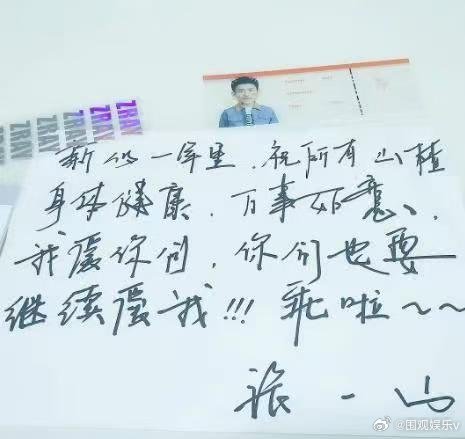 ZRAV ZRAV ZRAV ZRAV
新的一年里,祝所有山楂
身体健康,百事如意、
我爱你们,你们也要
继续爱我!!!乖啦~~
张一山
@围观娱乐v